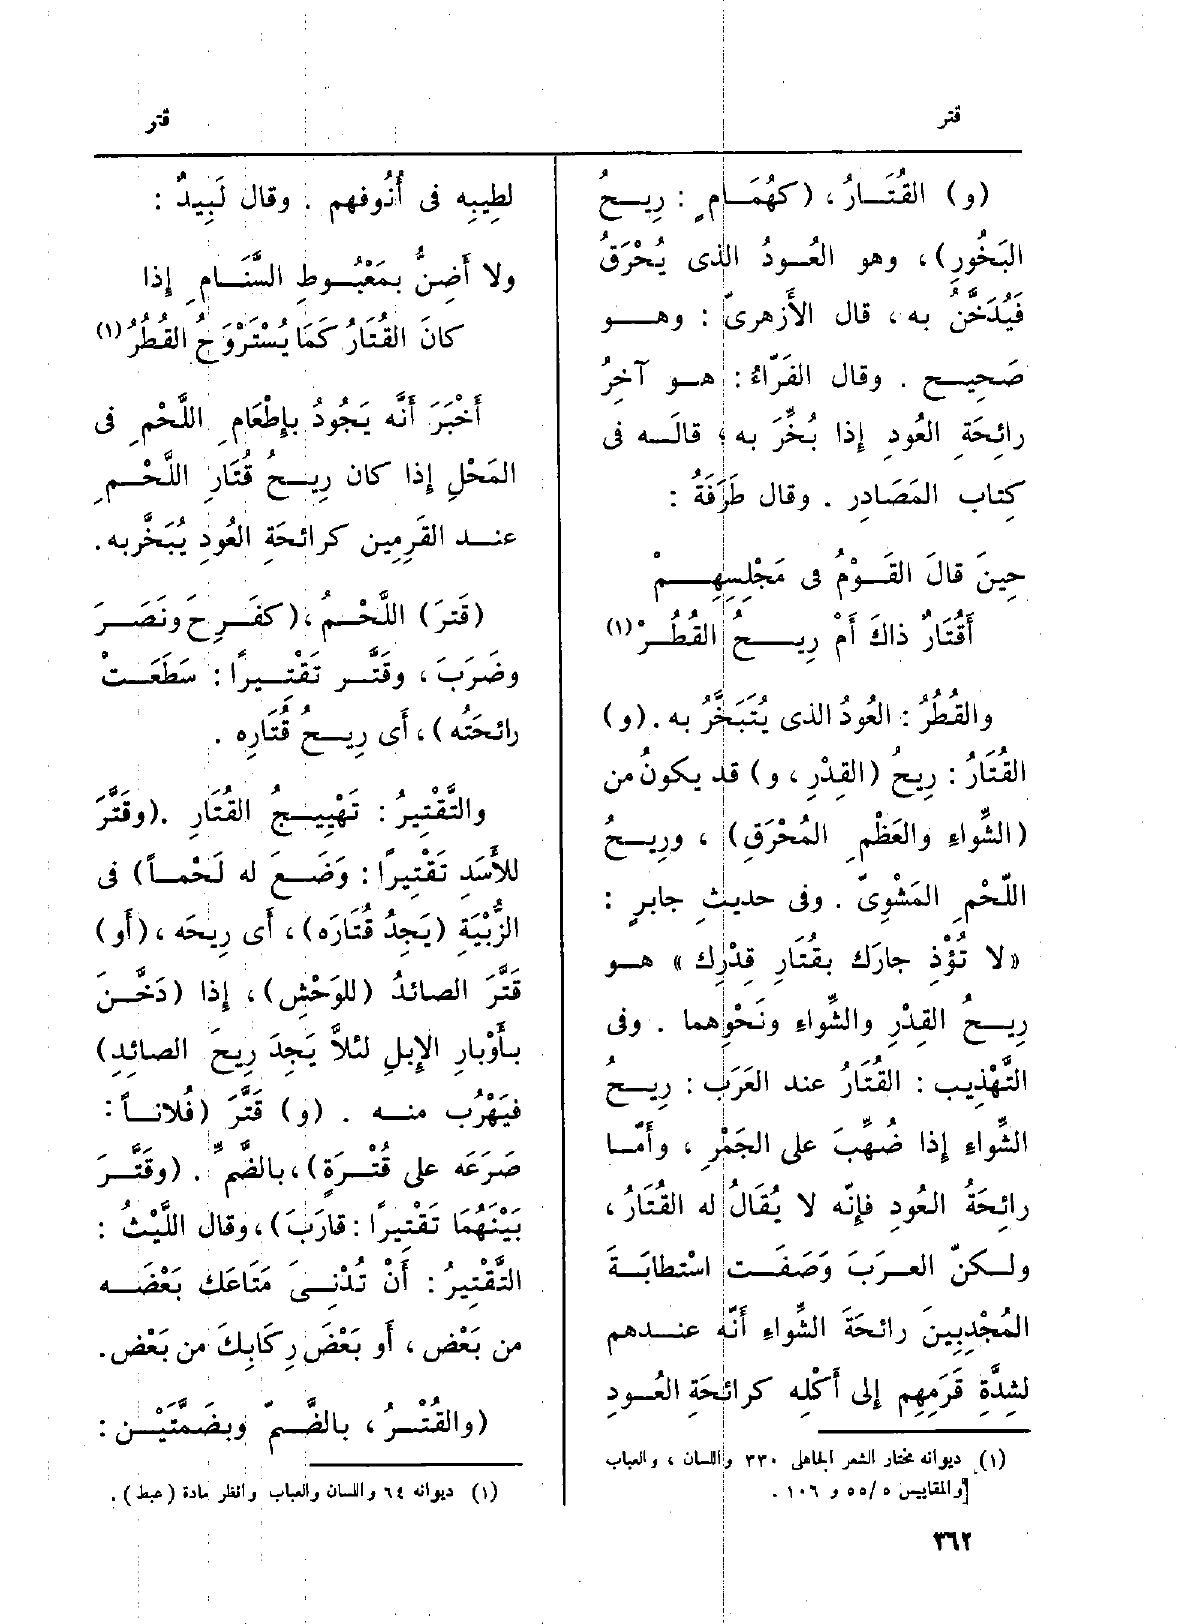 قتر
قتر
(و) القُتَــارُ، (كهُمَــامٍ : رِيــحُ
البَخُورِ)، وهو العُــودُ الذى يُحْرَقُ
فَيُدَخَّنُ به، قال الأَزهرىّ : وهـــو
صَحِيــح . وقال الفَرّاءُ : هــو آخِرُ
رائِحَةِ العُودِ إِذا بُخِّرَ به؛ قالَــه فى
كِتاب المَصَادِر . وقال طَرَفَةُ :
حِينَ قالَ القَــوْمُ فى مَجْلِسِهِـــمْ
أَقُتَارٌ ذاكَ أَمْ رِيــحُ القُطُــرْ (١)
والقُطُرُ : العُودُ الذى يُتَبَخَّرُ به . (و)
القُتَارُ : رِيحُ (القِدْرِ، و) قد يكونُ من
(الشِّواءِ والعَظْمِ المُحْرَقِ)، ورِيــحُ
اللّحْمِ المَشْوِىّ . وفى حديثِ جابرٍ :
«لا تُؤْذِ جارَك بقُتَارِ قِدْرِك» هــو
رِيــحُ القِدْرِ والشِّواءِ ونَحْوِهما . وفى
التَّهْذِيب : القُتَارُ عند العَرَب : رِيــحُ
الشِّواءِ إِذا ضُهِّبَ على الجَمْرِ، وأَمّــا
رائحَةُ العُودِ فإِنّه لا يُقَالُ له القُتَارُ،
ولــكنّ العــربَ وَصَفَــت اسْتطابَــةَ
المُجْدِبِينَ رائحَةَ الشِّواءِ أَنّه عنــدهم
لشِدَّةِ قَرَمِهِم إِلى أَكْلِه كرائحَةِ العُــودِ
(١) ديوانه مختار الشعر الجاهلى ٣٣٠ واللسان ، والعباب
والمقاييس ٥/٥٥ و ١٠٦ .
٣٦٢
لطِيبِه فى أُنُوفهم . وقال لَبِيدٌ :
ولا أَضِنُّ بمَغْبُــوطِ السَّنَــامِ إِذا
كانَ القُتَارُ كَمَا يُسْتَرْوَحُ القُطُرُ (١)
أَخْبَرَ أَنَّه يَجُودُ بإِطْعَامِ اللَّحْمِ فى
المَحْلِ إِذا كان رِيــحُ قُتَارِ اللَّحْــمِ
عنــد القَرِمِين كرائحَةِ العُودِ يُبَخَّر به .
(قَتَرَ) اللَّحْــمُ، (كفَــرِحَ ونَصَــرَ
وضَرَبَ، وقَتَّــر تَقْتِــيرًا : سَطَعَــتْ
رائحَتُه)، أَى رِيــحُ قُتَارِه .
والتَّقْتِيرُ : تَهْيِيــجُ القُتَارِ . (وقَتَّرَ
للأَسَدِ تَقْتِيرًا : وَضَــعَ له لَحْمــاً) فى
الزُّبْيَةِ (يَجِدُ قُتَارَه)، أَى رِيحَه، (أَو)
قَتَّرَ الصائدُ (للوَحْشِ)، إِذا (دَخَّــنَ
بأَوْبارِ الإِبلِ لئلاَّ يَجِدَ رِيحَ الصائِدِ)
فيَهْرُب منــه . (و) قَتَّرَ (فُلانــاً :
صَرَعَه على قُتْــرَةٍ)، بالضَّمّ . (وقَتَّــرَ
بَيْنَهُمَا تَقْتِيرًا : قارَبَ)، وقال اللَّيْثُ :
التَّقْتِيرُ : أَنْ تُدْنِــىَ مَتَاعَك بَعْضَــه
من بَعْض، أَو بَعْضَ رِكَابِكَ من بَعْض .
(والقُتْــرُ، بالضَّــمّ وبضَمَّتَيْــن :
(١) ديوانه ٦٤ واللسان والعباب وانظر مادة (عبط) .